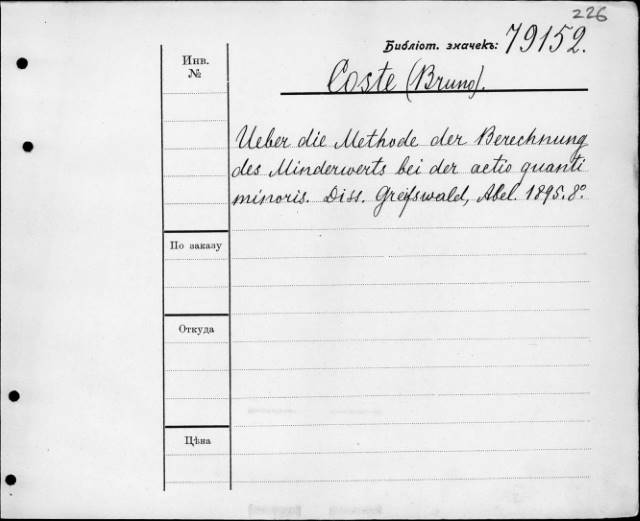 226
Библіот. значекъ: 79152.
Инв. №
Coste (Bruno).
Ueber die Methode der Berechnung
des Minderwerts bei der actio quanti
minoris. Diss. Greifswald, Abel. 1895. 8°.
По заказу
Откуда
Цѣна